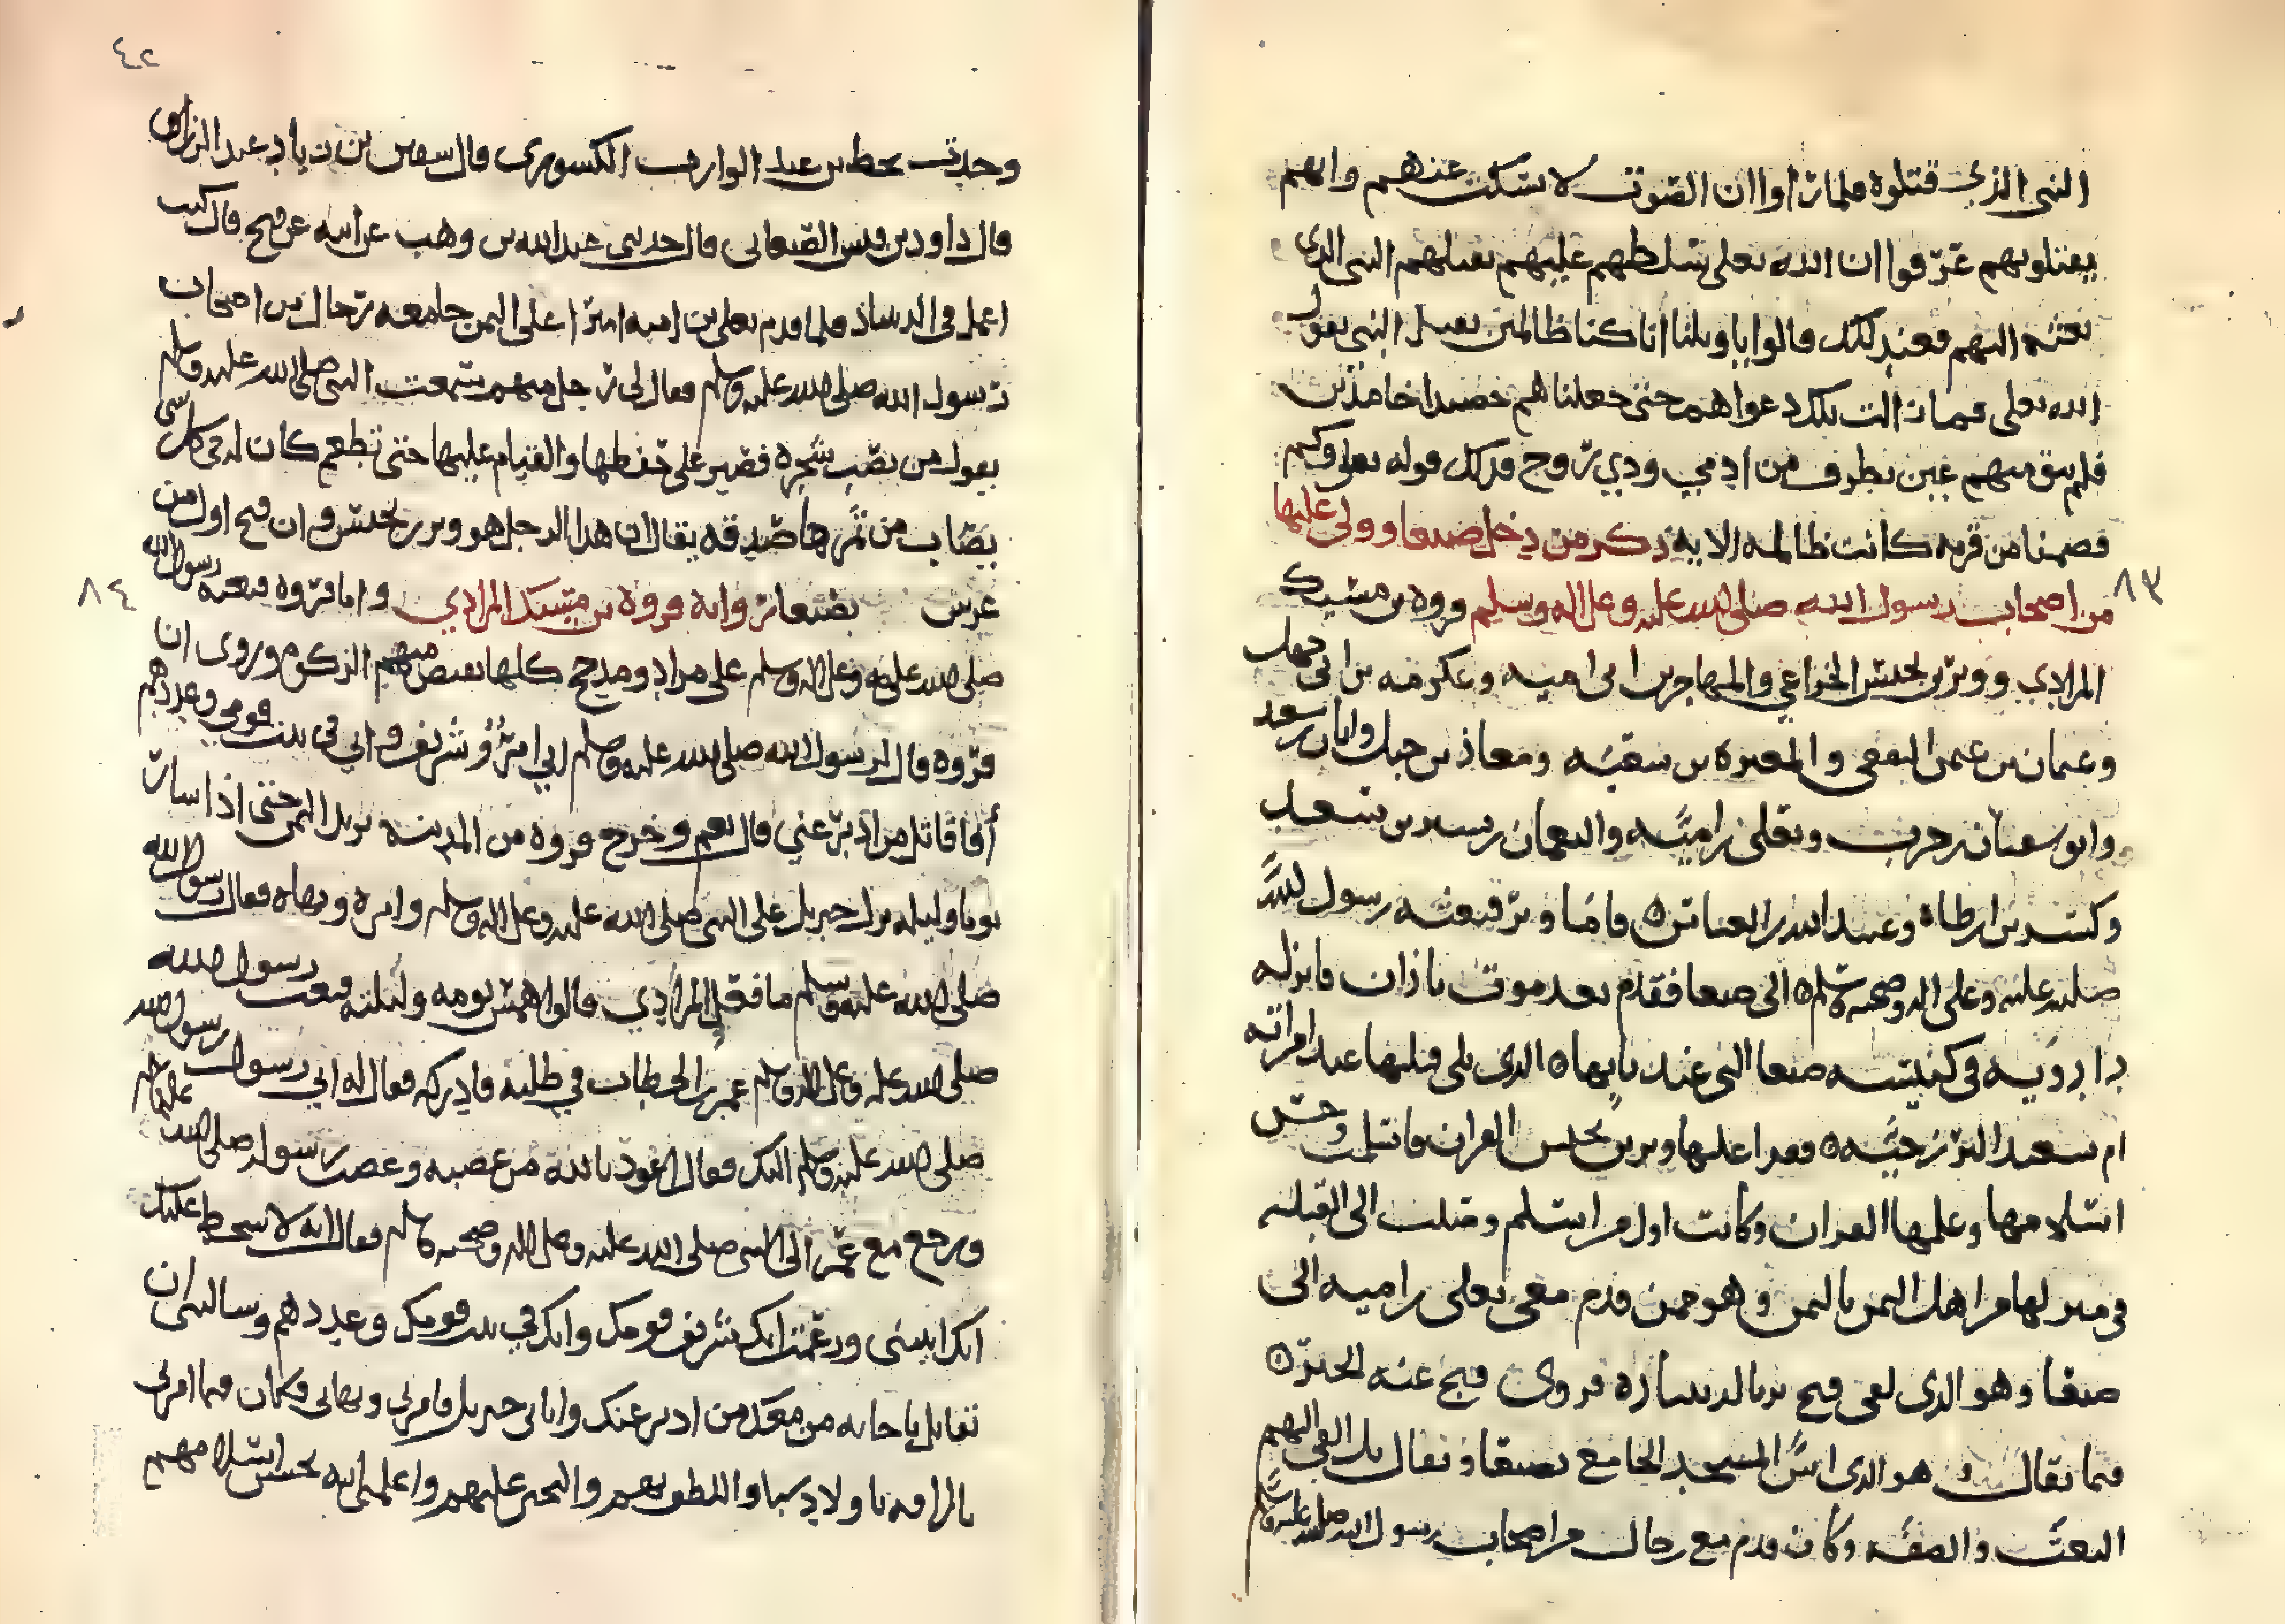 النبى الذي قتلوه فلما راوا ان الصوت لا يسكت عنهم وانهم
يقتلونهم عرفوا ان الله تعلى سلطهم عليهم بقتلهم النبى الذي
بعثه اليهم فعند ذلك قالوا يا ويلنا انا كنا ظالمين بقتل النبى يقول
الله تعلى فما زالت تلك دعواهم حتى جعلناهم حصيدا خامدين
فلم يبق منهم عين تطرف من ادمي وذي روح فذلك قوله تعلى وكم
قصمنا من قرية كانت ظالمة الاية ذكر من دخل صنعا وولى عليها
٨٣
من اصحاب رسول الله صلى الله عليه وعلى اله وسلم فروة بن مسيك
المرادي ووبر بن يحنس الخزاعي والمهاجر بن ابى امية وعكرمة بن ابى جهل
وعثمان بن عثمن الثقفى والمغيرة بن شعبة ومعاذ بن جبل وابان بن سعيد
وابو سفيان بن حرب ويعلى بن امية والنعمان بن بشير بن سعد
وبن ارطاة وعبيد الله بن العباس فاما وبر فبعثه رسول الله
صلى الله عليه وعلى اله وصحبه وسلم الى صنعا فقدم بعد موت باذان فانزله
داذويه في كنيسة صنعا التى عند بابها الذى يلى قبلها عند امراته
ام سعيد البزرجية فقرا عليها وبر بن يحنس القران فاسلمت وحسن
اسلامها وعلمها القران وكانت اول من اسلم وصلت الى القبلة
في منزلها من اهل اليمن باليمن وهو ممن قدم مع يعلى بن امية الى
صنعا وهو الذى لقى فنج بالدينباذ فروى فنج عنه الخبر
فيما يقال هو الذى اسس المسجد الجامع بصنعا ويقال بل القى اليهم
البعث والصفة وكان قدم مع رجال من اصحاب رسول الله صلى الله عليه وسلم
٤٢
وحدثت بخط بن عبد الوارث الكشورى قال سفين بن زياد عبد الرزاق
قال داود بن قيس الصنعانى قال حدثنى عبد الله بن وهب عن ابيه عن فنج قال كنت
اعمل في الدينباذ فلما قدم يعلى بن امية اميرا على اليمن جا معه رجال من اصحاب
رسول الله صلى الله عليه وسلم فقال لى رجل منهم سمعت النبى صلى الله عليه وسلم
يقول من نصب شجرة فصبر على حفظها والقيام عليها حتى تطعم كان له في كل شى
يصاب من ثمرها صدقة يقال ان هذا الرجل هو وبر بن يحنس وان فنج اول من
٨٤
غرس بصنعا رواية فروة بن مسيك المرادي واما فروة فبعثه رسول الله
صلى الله عليه وعلى اله وسلم على مراد ومذحج كلها يقبض منهم الزكوة وروى ان
فروة قال لرسول الله صلى الله عليه وسلم انى امرؤ شريف وانى في بيت قومي وعددهم
أفاقاتل من ادبر عني قال نعم وخرج فروة من المدينة يريد اليمن حتى اذا سار
يوما وليلة نزل جبريل على النبى صلى الله عليه وعلى اله وسلم وامره ونهاه فقال رسول الله
صلى الله عليه وسلم ما فعل المرادي قالوا سار يومه وليلته فبعث رسول الله
صلى الله عليه وعلى اله وسلم عمر بن الخطاب في طلبه فادركه فقال له انى رسول رسول الله
صلى الله عليه وسلم اليك فقال اعوذ بالله من غضبه وغضب رسوله صلى الله عليه وسلم
ورجع مع عمر الى النبى صلى الله عليه وعلى اله وصحبه وسلم فقال انه لا سخط عليك
انك اتيتنى وزعمت انك شريف قومك وانك في بيت قومك وعددهم وسالتنى ان
تقاتل باجابة من معك من ادبر عنك واتانى جبريل فامرنى ونهانى وكان فيما امرنى
بالرافة باولاد سبا واللطف بهم والتحنن عليهم واعلمنى انه يحسن اسلامهم